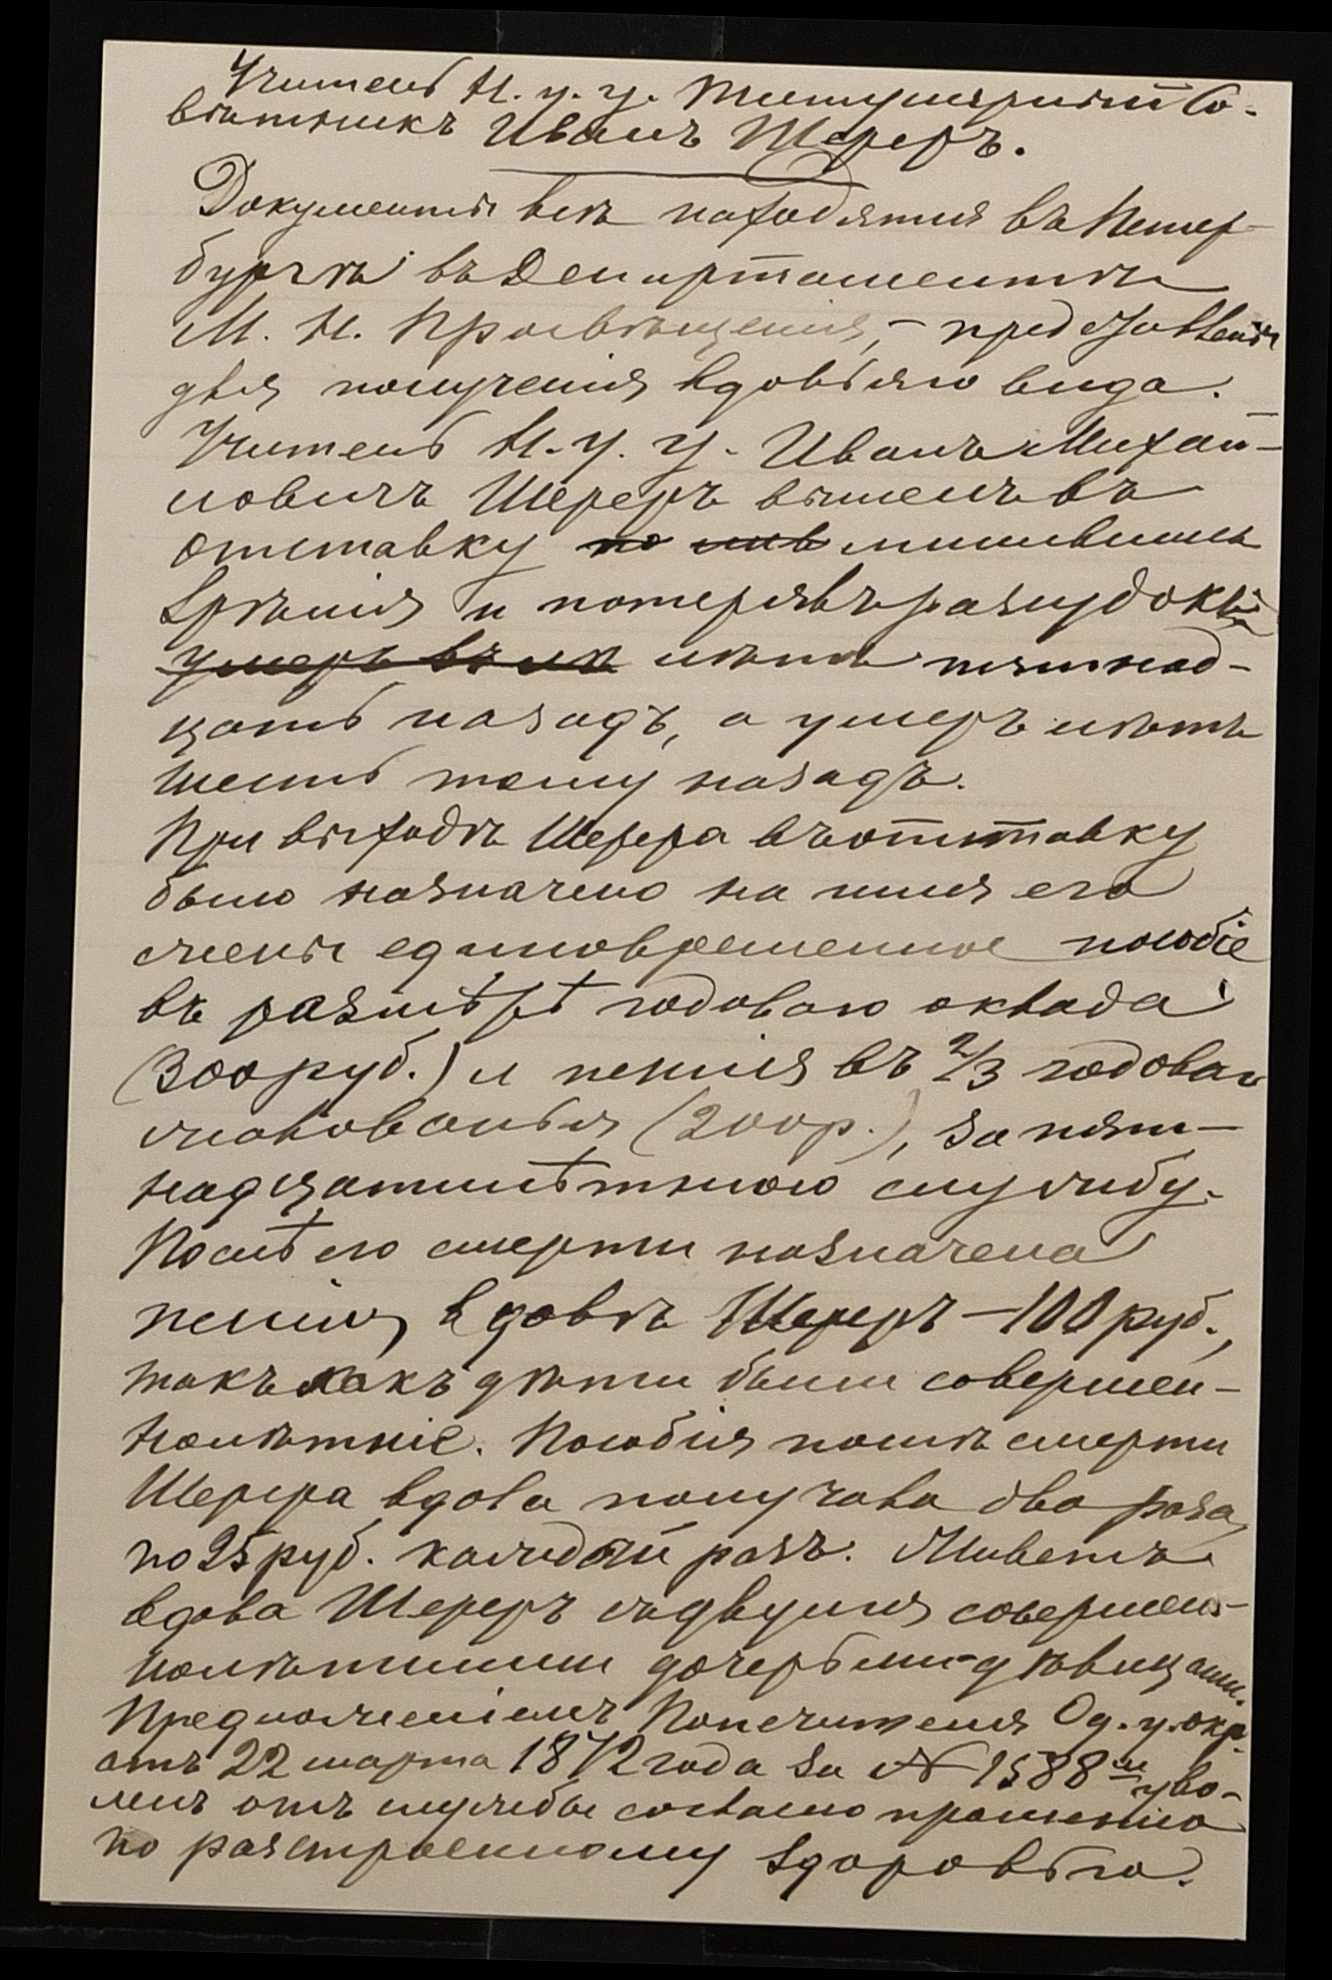 Учитель Н. у. у. Титулярный Со-
вѣтникъ Иванъ Шереръ.
Документы всѣ находятся въ Петер-
бургѣ въ Департаментѣ
М. Н. Просвѣщенія, – представлены
для полученія вдовьяго вида.
Учитель Н. у. у. Иванъ Михай-
ловичъ Шереръ вышелъ въ
отставку по лишившись
зрѣнія и потерявъ разсудокъ
умеръ въ лѣтъ пятнад-
цать назадъ, а умеръ лѣтъ
шесть тому назадъ.
При выходѣ Шерера въ отставку
было назначено на имя его
жены единовременное пособіе
въ размѣрѣ годоваго оклада
(300 руб.) и пенсія въ 2/3 годоваго
жалованья (200 р.), за пят-
надцатилѣтнюю службу.
Послѣ его смерти назначена
пенсія вдовѣ Шереръ – 100 руб.,
такъ какъ дѣти были совершен-
нолѣтніе. Пособія послѣ смерти
Шерера вдова получала два раза,
по 25 руб. каждый разъ. Живетъ
вдова Шереръ съ двумя совершен-
нолѣтними дочерьми-дѣвицами.
Предложеніемъ Попечителя Од. у. окр.
отъ 22 марта 1872 года за № 1588 уво-
ленъ отъ службы согласно прошенію
по разстроенному здоровью.